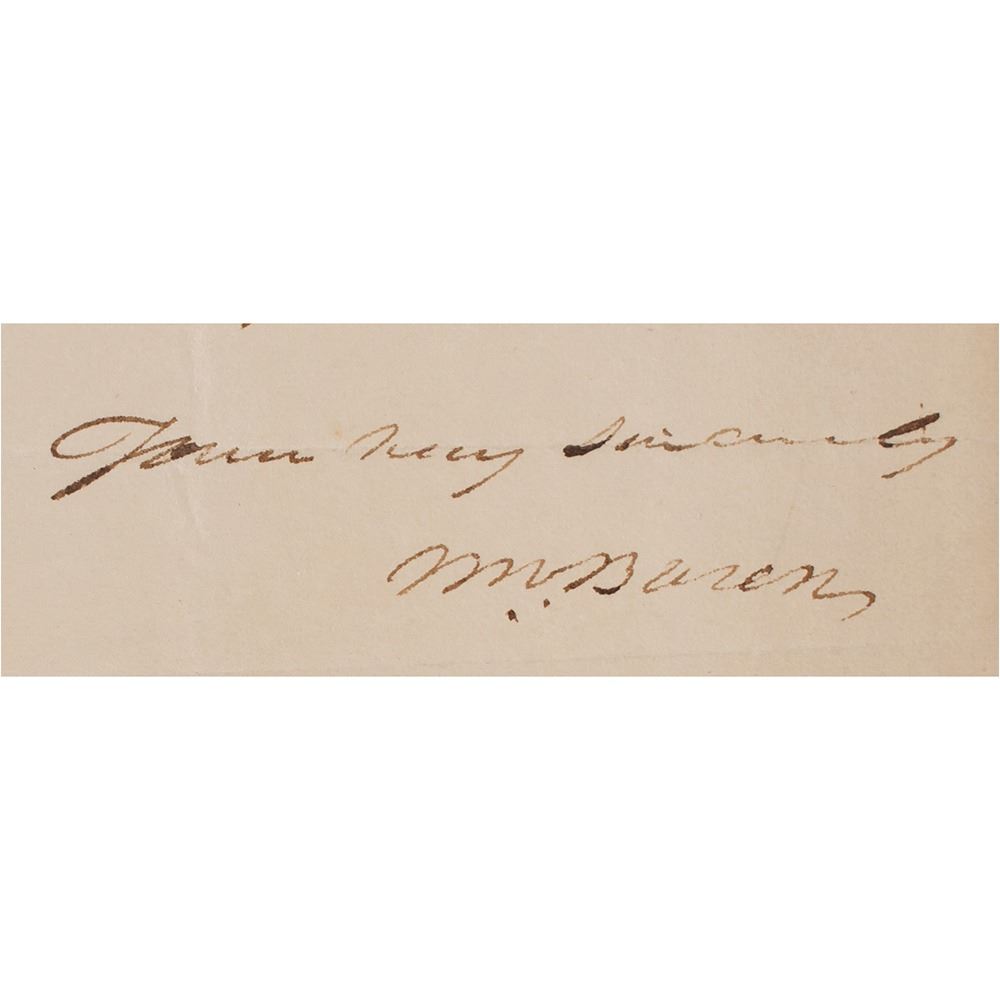 Yours very sincerely
Wm. Baron